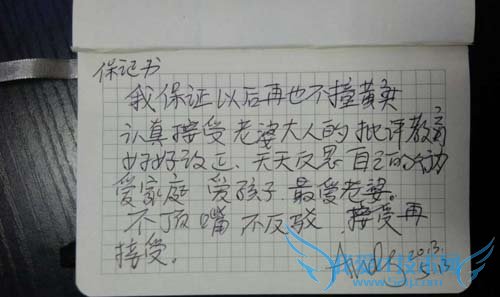 保记书
我保证以后再也不撞黄实
认真接受老婆大人的批评教育
好好改正、天天反思自己的行为
爱家庭 爱孩子 最爱老婆。
不顶嘴 不反驳 接受再
接受。
Andy
2013